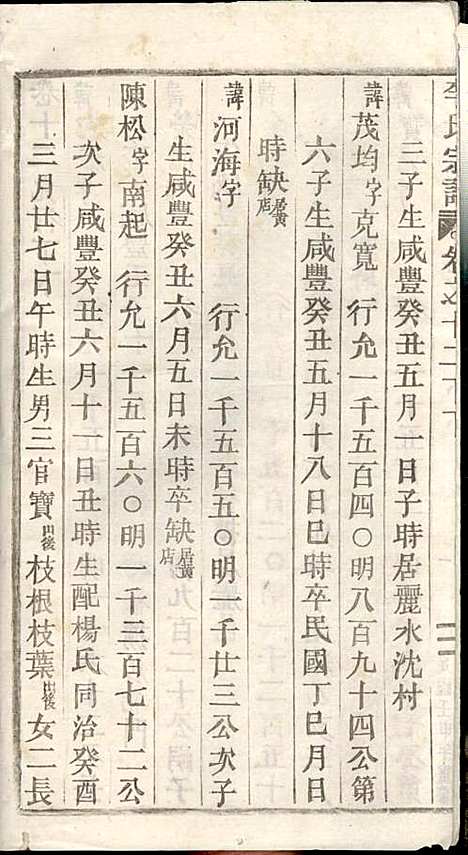 李氏宗譜 卷之十二
三子生咸豐癸丑五月一日子時居麗水沈村
諱茂均字克寬 行允一千五百四〇明八百九十四公第
六子生咸豐癸丑五月十八日巳時卒民國丁巳月日
時缺居黃店
諱河海字 行允一千五百五〇明一千廿三公次子
生咸豐癸丑六月五日未時卒缺居黃店
陳松字南起 行允一千五百六〇明一千三百七十二公
次子咸豐癸丑六月十一日丑時生配楊氏同治癸酉
三月廿七日午時生男三官寶出後枝根枝葉出後女二長